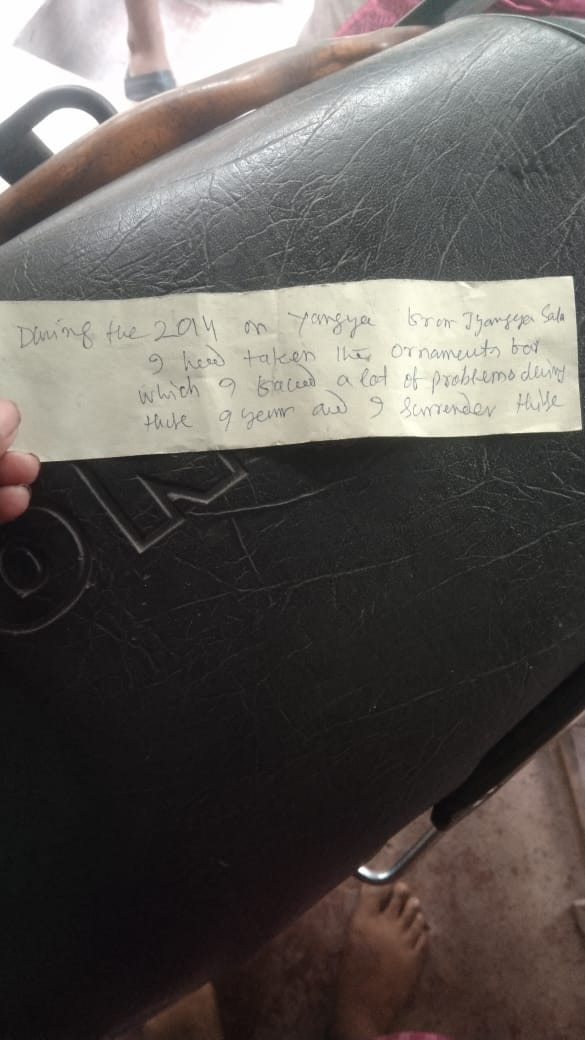 During the 2014 on Yangya from Jyangya Sala
I had taken the ornaments for
which I faced a lot of problems during
these 9 year and I surrender these